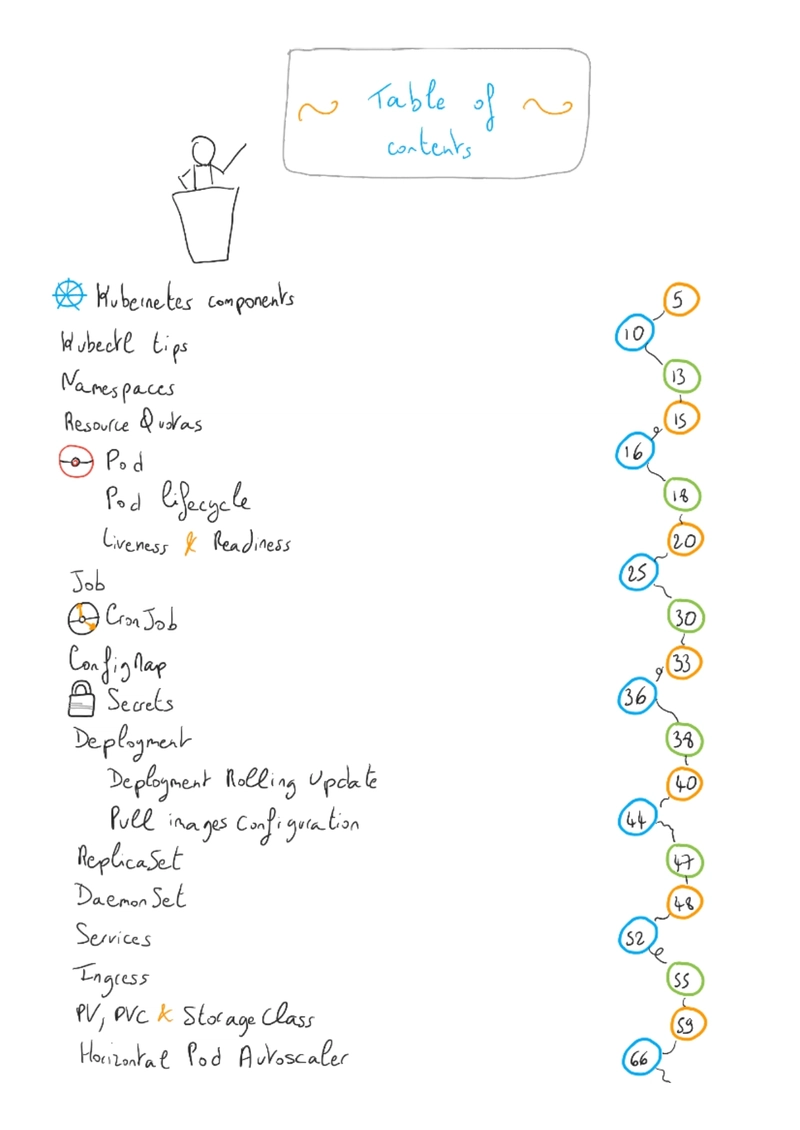 Table of
contents
Kubernetes components 5
Kubectl tips 10
Namespaces 13
Resource Quotas 15
Pod 16
Pod lifecycle 18
Liveness & Readiness 20
Job 25
CronJob 30
ConfigMap 33
Secrets 36
Deployment 38
Deployment Rolling Update 40
Pull images configuration 44
ReplicaSet 47
DaemonSet 48
Services 52
Ingress 55
PV, PVC & StorageClass 59
Horizontal Pod Autoscaler 66